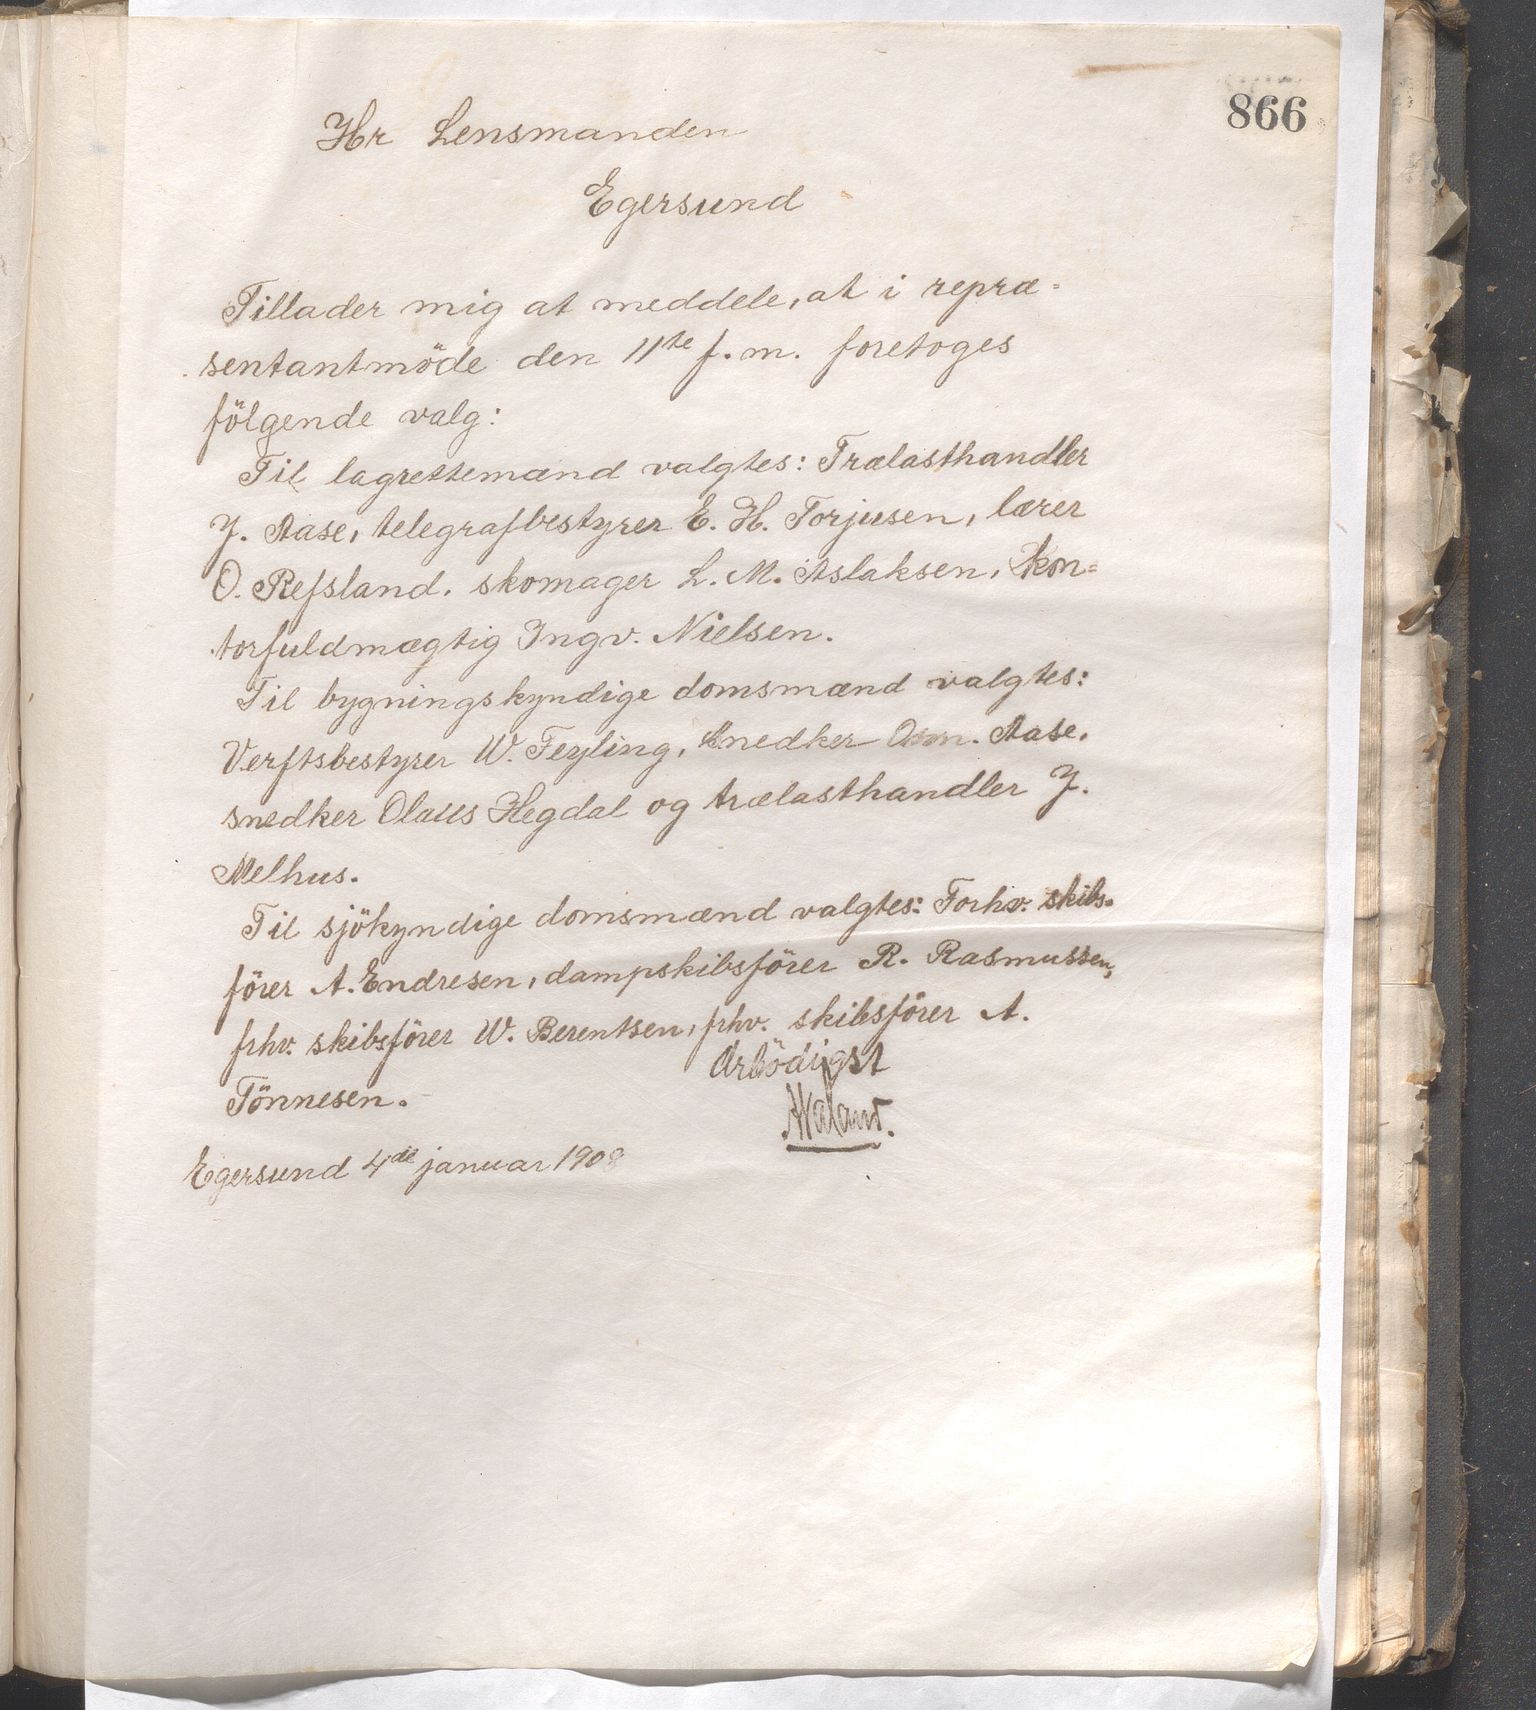 866
Hr Lensmanden
Egersund
Tillader mig at meddele, at i repræ-
sentantmöde den 11te f. m. foretoges
fölgende valg:
Til lagrettemænd valgtes: Trælasthandler
J. Aase, telegrafbestyrer E. H. Torjusen, lærer
O. Refsland. skomager L. M. Aslaksen, kon=
torfuldmægtig Ingv. Nielsen.
Til bygningskyndige domsmænd valgtes:
Verftsbestyrer W. Feyling, snedker Osm. Aase,
snedker Olaus Hegdal og trælasthandler J.
Melhus.
Til sjökyndige domsmænd valgtes: Forhv. skibs-
förer A. Endresen, dampskibsförer R. Rasmussen,
frhv. skibsförer W. Berentsen, frhv. skibsförer A.
Tönnesen.
Ærbödigst
Egersund 4de januar 1908